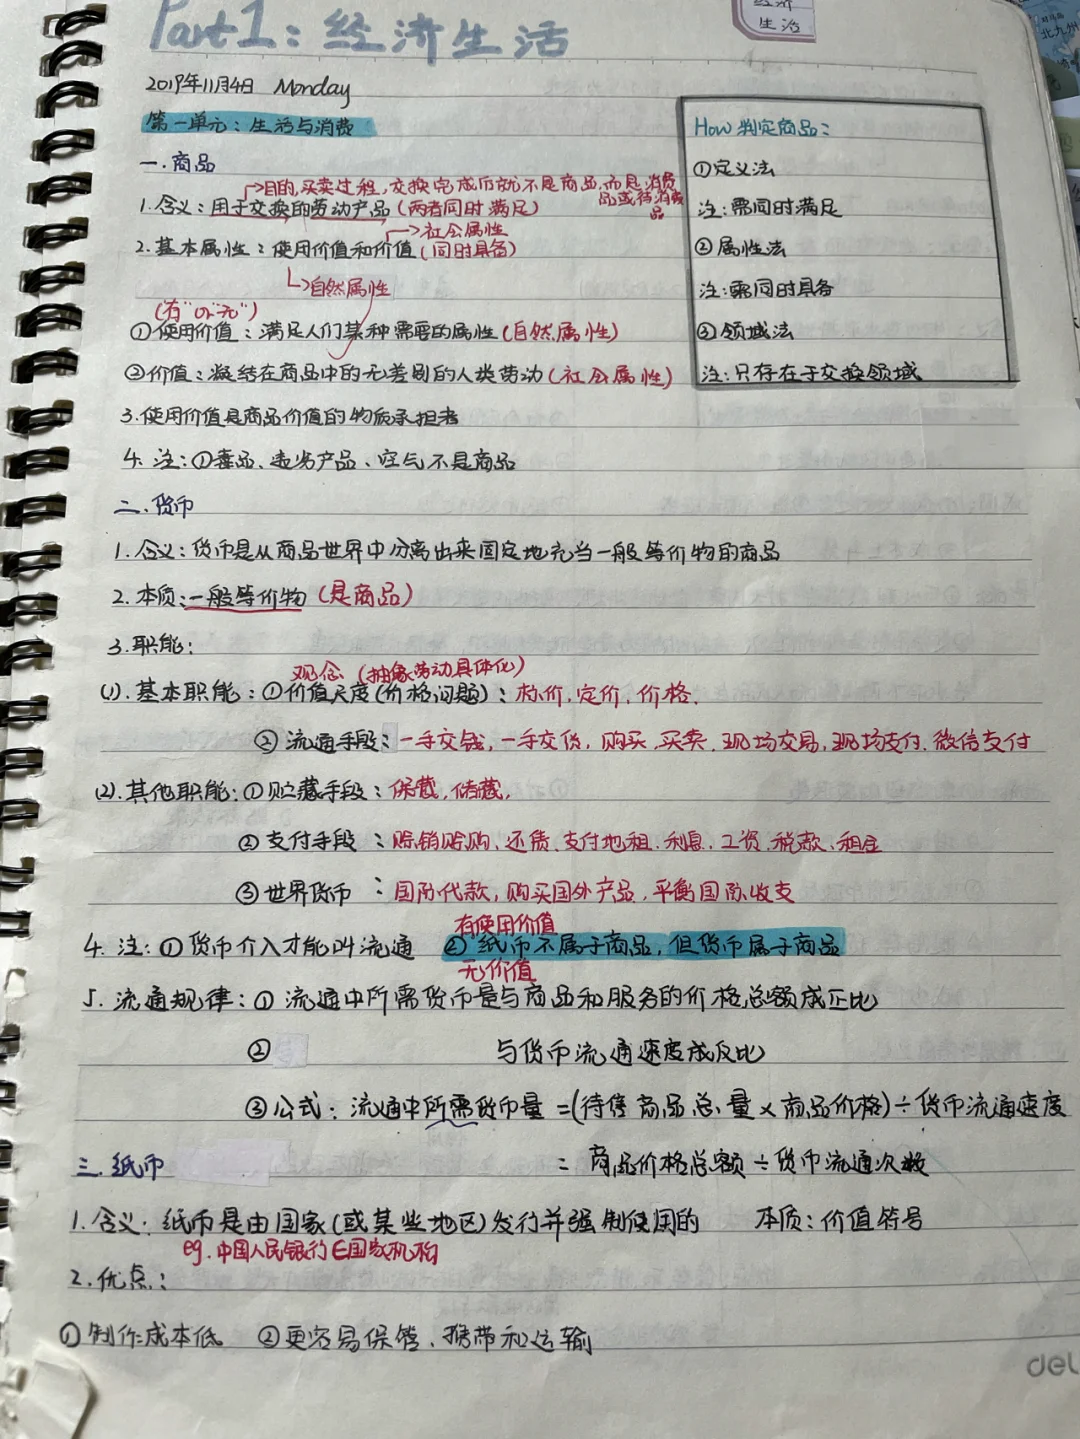 Part1：经济生活
经济
生活
2019年11月4日 Monday
第一单元：生活与消费
How 判定商品：
①定义法
注：需同时满足
②属性法
注：需同时具备
③领域法
注：只存在于交换领域
一.商品
→目的,买卖过程,交换完成后就不是商品,而是消费
品或待消费
品
1.含义：用于交换的劳动产品(两者同时满足)
→社会属性
2.基本属性：使用价值和价值(同时具备)
↳自然属性
(有"or"无")
①使用价值：满足人们某种需要的属性(自然属性)
②价值：凝结在商品中的无差别的人类劳动(社会属性)
3.使用价值是商品价值的物质承担者
4.注：①毒品、走光产品、空气不是商品
二.货币
1.含义：货币是从商品世界中分离出来固定地充当一般等价物的商品
2.本质：一般等价物(是商品)
3.职能：
观念(抽象劳动具体化)
(1).基本职能：①价值尺度(价格问题)：标价,定价,价格.
②流通手段：一手交钱,一手交货,购买,买卖,现场交易,现场支付,微信支付
(2).其他职能：①贮藏手段：保藏,储藏,
②支付手段：赊销赊购、还债、支付地租、利息、工资、税款、租金
③世界货币：国际代款,购买国外产品,平衡国际收支
有使用价值
4.注：①货币介入才能叫流通 ②纸币不属于商品,但货币属于商品
无价值
5.流通规律：①流通中所需货币量与商品和服务的价格总额成正比
② 与货币流通速度成反比
③公式：流通中所需货币量=(待售商品总量×商品价格)÷货币流通速度
三.纸币 =商品价格总额÷货币流通次数
1.含义：纸币是由国家(或某些地区)发行并强制使用的 本质：价值符号
eg.中国人民银行∈国家机构
2.优点：
①制作成本低 ②更容易保管、携带和运输
deli